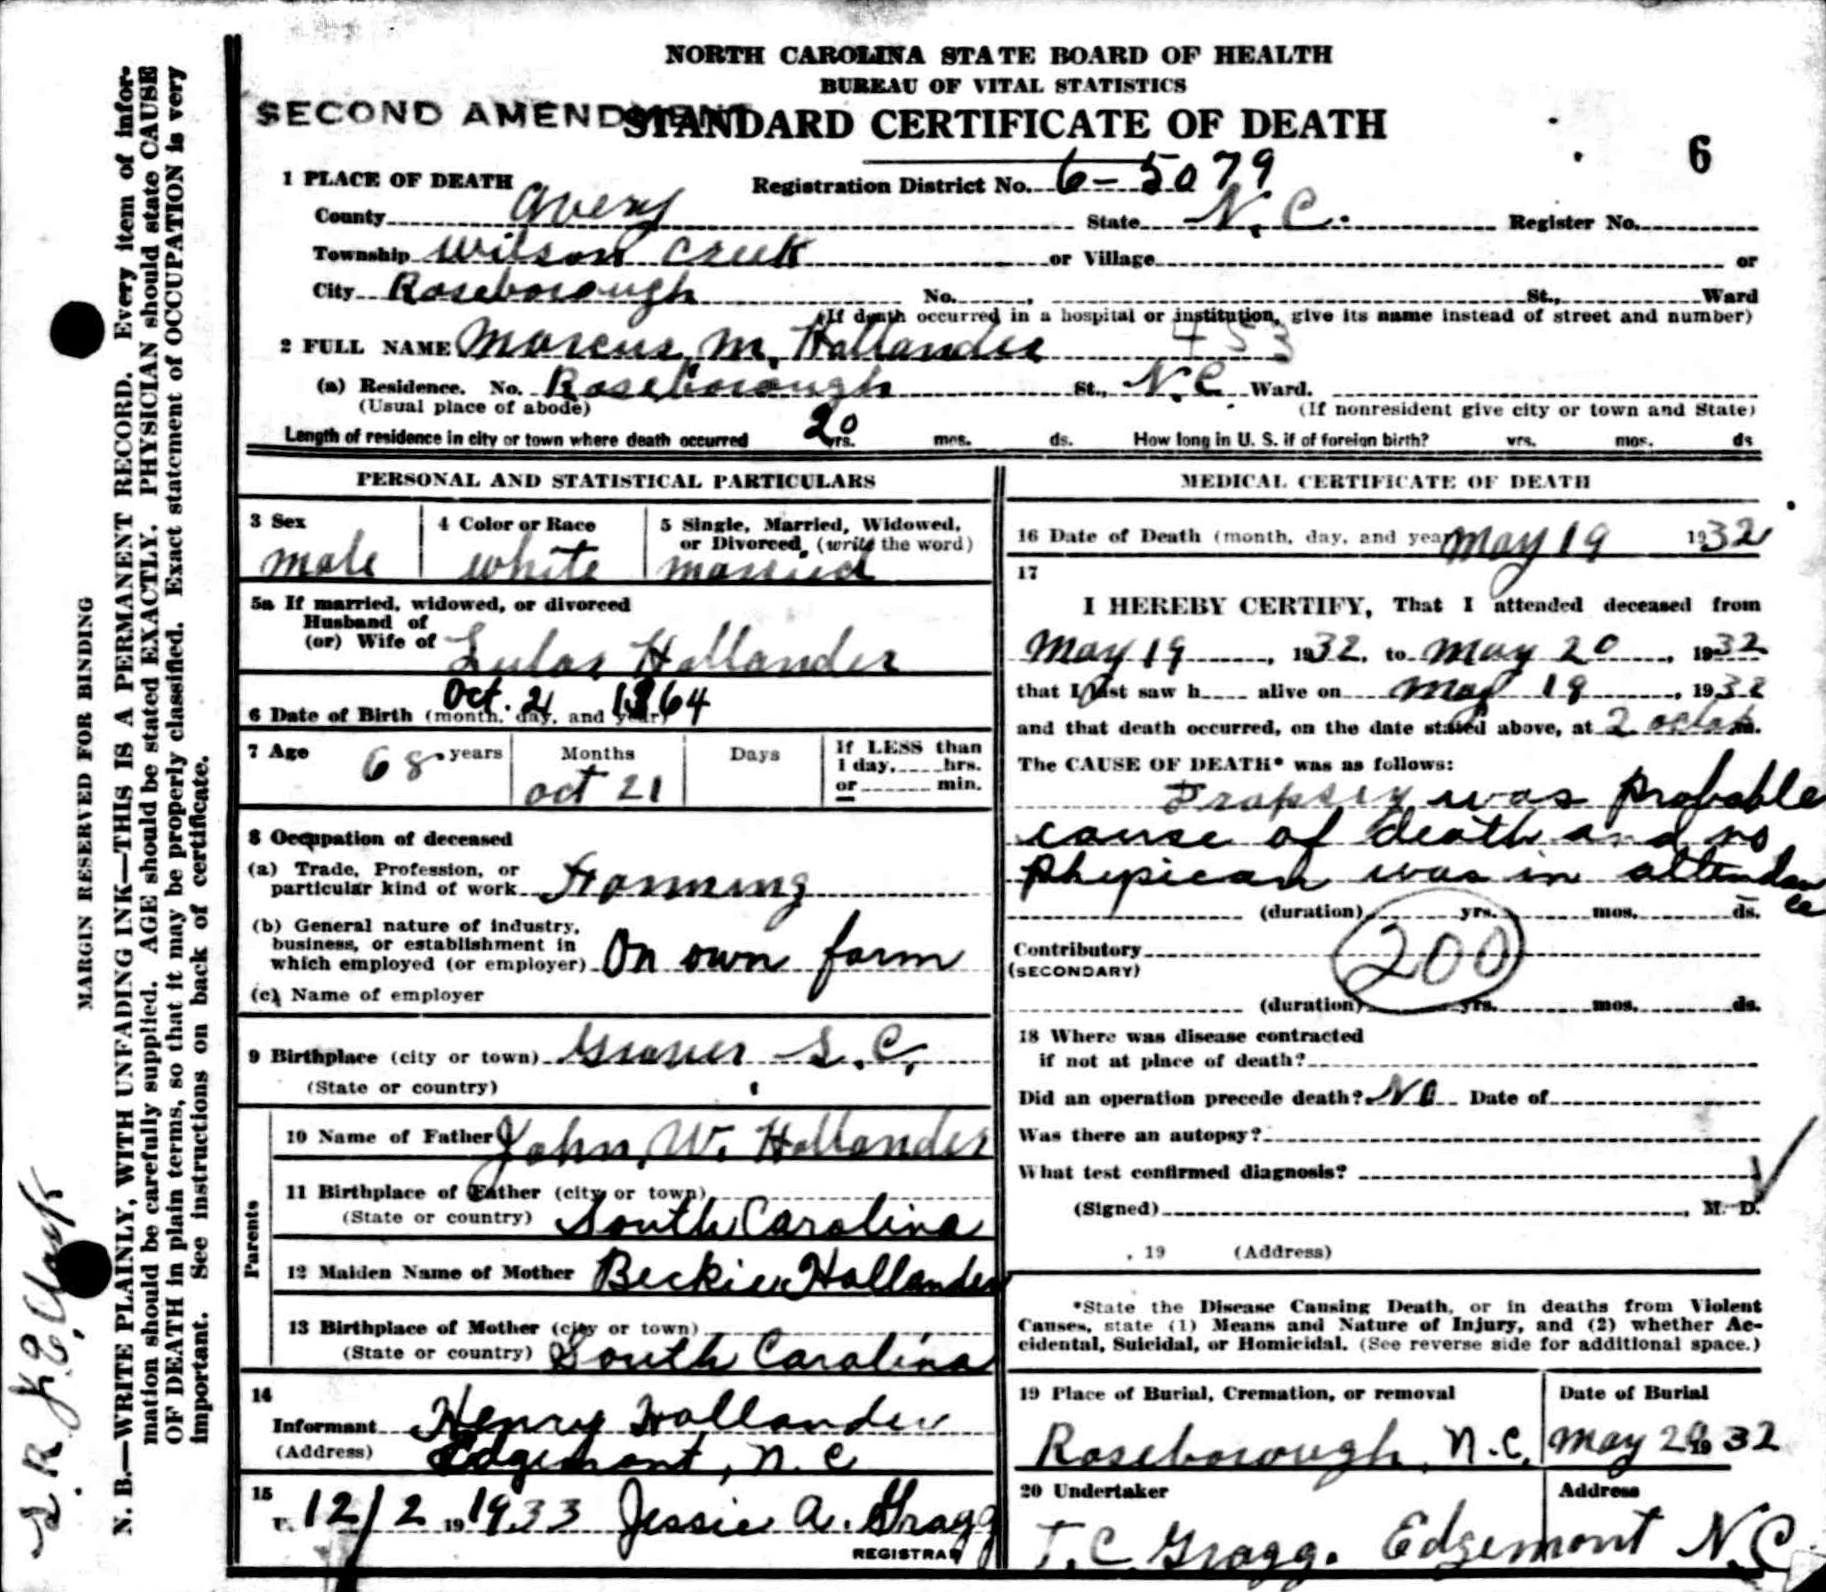 NORTH CAROLINA STATE BOARD OF HEALTH
BUREAU OF VITAL STATISTICS
SECOND AMENDMENT
STANDARD CERTIFICATE OF DEATH
6
1 PLACE OF DEATH Registration District No. 6-5079
County Avery State N.C. Register No.
Township Wilson Creek or Village or
City Roseborough No. , St., Ward
(If death occurred in a hospital or institution, give its name instead of street and number)
2 FULL NAME Marcus M. Hollander 453
(a) Residence. No. Roseborough St., N.C. Ward.
(Usual place of abode) (If nonresident give city or town and State)
Length of residence in city or town where death occurred 20 yrs. mos. ds. How long in U. S. if of foreign birth? yrs. mos. ds
PERSONAL AND STATISTICAL PARTICULARS
3 Sex male
4 Color or Race white
5 Single, Married, Widowed, or Divorced, (write the word) married
5a If married, widowed, or divorced
Husband of
(or) Wife of Hollander
6 Date of Birth (month, day, and year) Oct. 21 1864
7 Age 68 years Months Oct 21 Days If LESS than 1 day, hrs. or min.
8 Occupation of deceased
(a) Trade, Profession, or
particular kind of work Farming
(b) General nature of industry,
business, or establishment in
which employed (or employer) On own farm
(c) Name of employer
9 Birthplace (city or town) Grover S.C.
(State or country)
Parents
10 Name of Father John W. Hollander
11 Birthplace of Father (city or town)
(State or country) South Carolina
12 Maiden Name of Mother Beckie Hollander
13 Birthplace of Mother (city or town)
(State or country) South Carolina
14
Informant Henry Hollander
(Address) Edgemont, N.C
15
F. 12/2 19 1933 Jessie A. Gragg
REGISTRAR
MEDICAL CERTIFICATE OF DEATH
16 Date of Death (month, day, and year) May 19 1932
17
I HEREBY CERTIFY, That I attended deceased from
May 19, 1932, to May 20, 1932
that I last saw h alive on May 18, 1932
and that death occurred, on the date stated above, at 2 m.
The CAUSE OF DEATH* was as follows:
Drapsey was probable
cause of death and no
physican was in attendance
(duration) yrs. mos. ds.
Contributory
(SECONDARY)
200
(duration) yrs. mos. ds.
18 Where was disease contracted
if not at place of death?
Did an operation precede death? No Date of
Was there an autopsy?
What test confirmed diagnosis?
(Signed) , M. D.
, 19 (Address)
*State the Disease Causing Death, or in deaths from Violent
Causes, state (1) Means and Nature of Injury, and (2) whether Ac-
cidental, Suicidal, or Homicidal. (See reverse side for additional space.)
19 Place of Burial, Cremation, or removal Date of Burial
Roseborough, N.C. May 20 1932
20 Undertaker Address
T.C. Gragg. Edgemont N.C.
MARGIN RESERVED FOR BINDING
N. B.—WRITE PLAINLY, WITH UNFADING INK—THIS IS A PERMANENT RECORD. Every item of infor-
mation should be carefully supplied. AGE should be stated EXACTLY. PHYSICIAN should state CAUSE
OF DEATH in plain terms, so that it may be properly classified. Exact statement of OCCUPATION is very
important. See instructions on back of certificate.